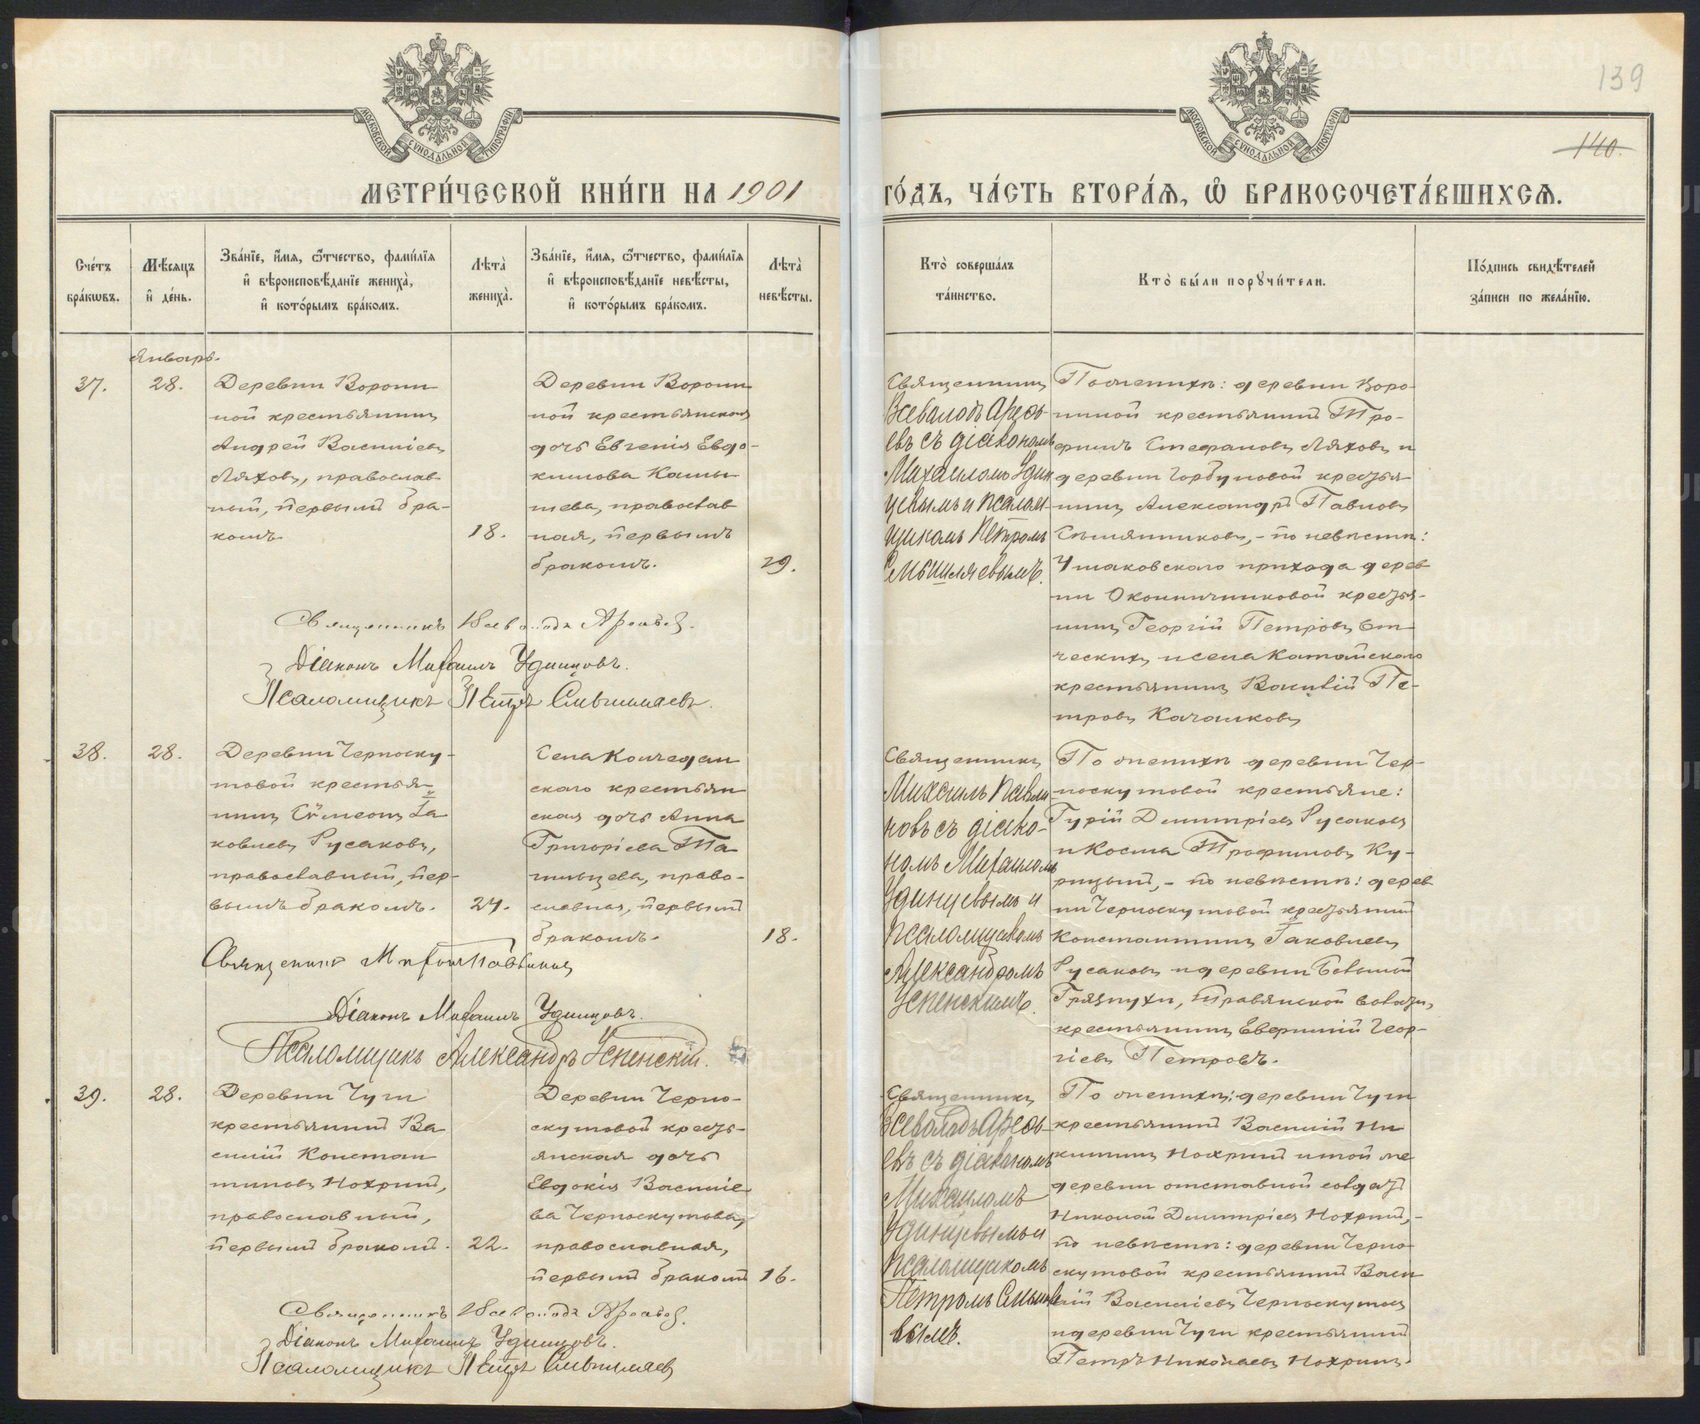 139
140.
МОСКОВСКОЙ СѴНОДАЛЬНОЙ ТИПОГРАФІИ
МОСКОВСКОЙ СѴНОДАЛЬНОЙ ТИПОГРАФІИ
МЕТРИ́ЧЕСКОЙ КНИ́ГИ НА 1901
ГО́ДЪ, ЧА́СТЬ ВТОРА́Ѧ, Ѿ БРАКОСОЧЕТА́ВШИХСѦ.
Сче́тъ
бра́кѡвъ.
Мѣ́сѧцъ
и҆ де́нь.
Зва́нїе, и҆́мѧ, ѻ҆́тчество, фами́лїѧ
и҆ вѣроисповѣ́данїе жениха̀,
и҆ кото́рымъ бра́комъ.
Лѣта̀
жениха̀.
Зва́нїе, и҆́мѧ, ѻ҆́тчество, фами́лїѧ
и҆ вѣроисповѣ́данїе невѣ́сты,
и҆ кото́рымъ бра́комъ.
Лѣта̀
невѣ́сты.
Кто̀ соверша́лъ
та́инство.
Кто̀ бы́ли порꙋчи́тели.
По́дпись свидѣ́телей
за́писи по жела́нїю.
Январь.
37.
28.
Деревни Ворони-
ной крестьянинъ
Андрей Васильевъ
Ляховъ, православ-
ный, первымъ бра-
комъ
18.
Деревни Ворони-
ной крестьянская
дочь Евгенія Евдо-
кимова
православ-
ная, первымъ
бракомъ.
29.
Священникъ
Всеволодъ Арефь-
евъ съ діакономъ
Михаиломъ Удин-
цевымъ и псалом-
щикомъ Петромъ
По женихѣ: деревни Воро-
ниной крестьянинъ Тро-
фимъ Стефановъ Ляховъ и
деревни Горбуновой крестья-
нинъ Александръ Павловъ
по невѣстѣ:
прихода дерев-
ни крестья-
нинъ Георгій Петровъ
и села Катайского
крестьянинъ Василій Пе-
тровъ
Священникъ Всеволодъ Арефьев.
Діаконъ Михаилъ Удинцовъ.
Псаломщикъ Петръ
38.
28.
Деревни Черноску-
товой крестья-
нинъ Сѵмеонъ Іа-
ковлевъ Русаковъ,
православный, пер-
вымъ бракомъ.
24.
Села Колчедан-
скаго крестьян-
ская дочь Анна
Григоріева Та-
право-
славная, первымъ
бракомъ.
18.
Священникъ
Михаилъ Павли-
новъ съ діако-
номъ Михаиломъ
Удинцевымъ и
псаломщикомъ
Александромъ
Успенскимъ.
По женихѣ деревни Чер-
носкутовой крестьяне:
Гурій Димитріевъ Русаковъ
и Косма Трофимовъ Ку-
по невѣстѣ: дерев-
ни Черноскутовой крестьянинъ
Константинъ Іаковлевъ
Русаковъ и деревни Большой
Грязнухи, Травянской волости,
крестьянинъ Евфимій Геор-
гіевъ Петровъ.
Священникъ Михаилъ Павлиновъ
Діаконъ Михаилъ Удинцовъ.
Псаломщикъ Александръ Успенскій.
39.
28.
Деревни Чуги
крестьянинъ Ва-
силій Констан-
тиновъ Нохринъ,
православный,
первымъ бракомъ.
22.
Деревни Черно-
скутовой кресть-
янская дочь
Евдокія Василіе-
ва Черноскутова,
православная,
первымъ бракомъ
16.
Священникъ
Всеволодъ Арефь-
евъ съ діакономъ
Михаиломъ
Удинцевымъ и
псаломщикомъ
Петромъ
По женихѣ: деревни Чуги
крестьянинъ Василій Ни-
китинъ Нохринъ и той же
деревни отставной солдатъ
Николай Димитріевъ Нохринъ,-
по невѣстѣ: деревни Черно-
скутовой крестьянинъ Васи-
лій Василіевъ Черноскутовъ
и деревни Чуги крестьянинъ
Петръ Николаевъ Нохринъ.
Священникъ Всеволодъ Арефьев.
Діаконъ Михаилъ Удинцовъ.
Псаломщикъ Петръ